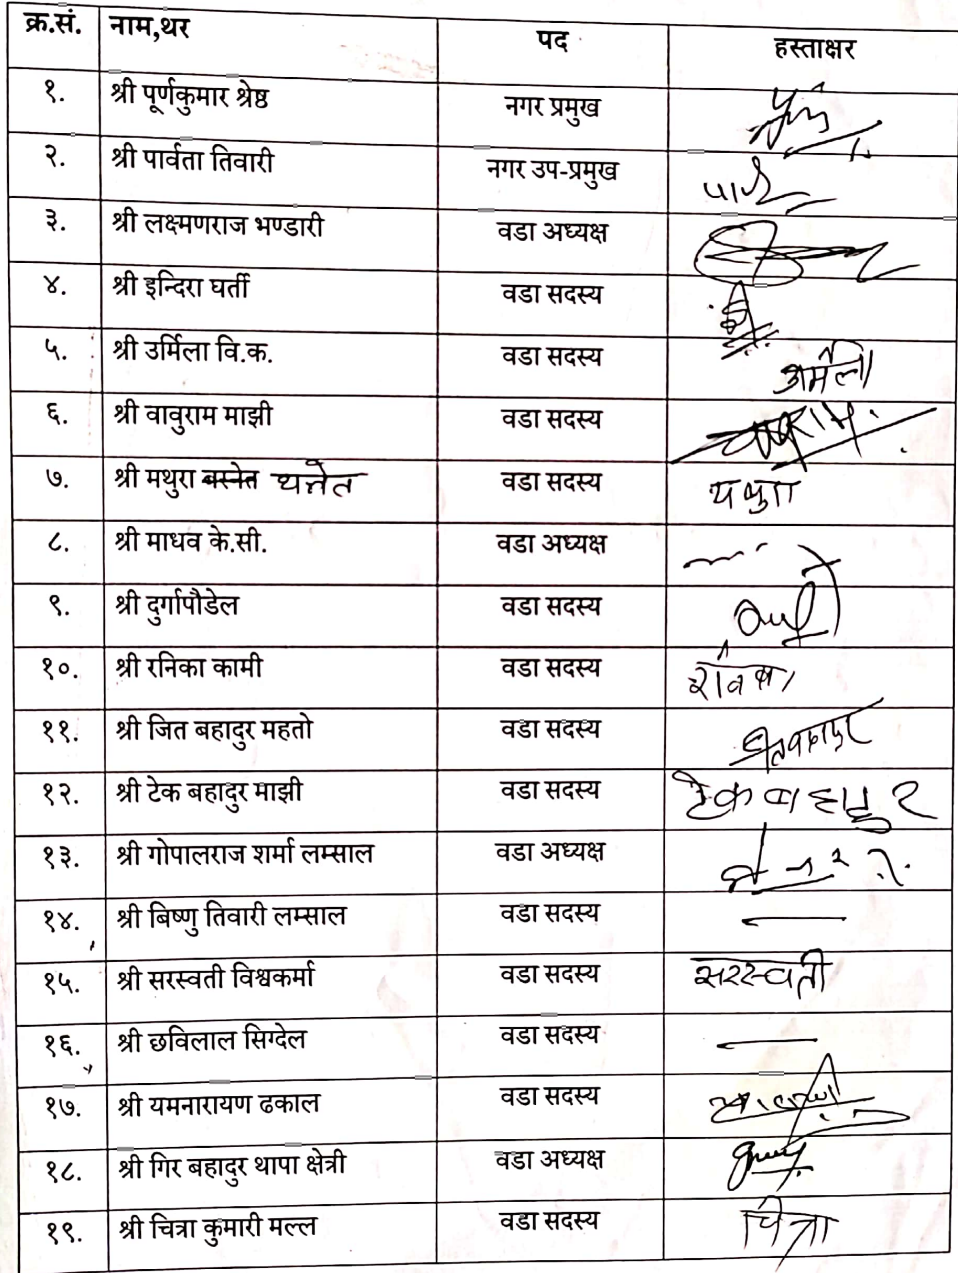 क्र.सं. नाम,थर पद हस्ताक्षर
१. श्री पूर्णकुमार श्रेष्ठ नगर प्रमुख
२. श्री पार्वता तिवारी नगर उप-प्रमुख
३. श्री लक्ष्मणराज भण्डारी वडा अध्यक्ष
४. श्री इन्दिरा घर्ती वडा सदस्य
५. श्री उर्मिला वि.क. वडा सदस्य
६. श्री वावुराम माझी वडा सदस्य
७. श्री मथुरा बस्नेत थनेत वडा सदस्य
८. श्री माधव के.सी. वडा अध्यक्ष
९. श्री दुर्गापौडेल वडा सदस्य
१०. श्री रनिका कामी वडा सदस्य
११. श्री जित बहादुर महतो वडा सदस्य
१२. श्री टेक बहादुर माझी वडा सदस्य टेक बहादुर
१३. श्री गोपालराज शर्मा लम्साल वडा अध्यक्ष
१४. श्री बिष्णु तिवारी लम्साल वडा सदस्य
१५. श्री सरस्वती विश्वकर्मा वडा सदस्य सरस्वती
१६. श्री छविलाल सिग्देल वडा सदस्य
१७. श्री यमनारायण ढकाल वडा सदस्य
१८. श्री गिर बहादुर थापा क्षेत्री वडा अध्यक्ष
१९. श्री चित्रा कुमारी मल्ल वडा सदस्य चित्रा